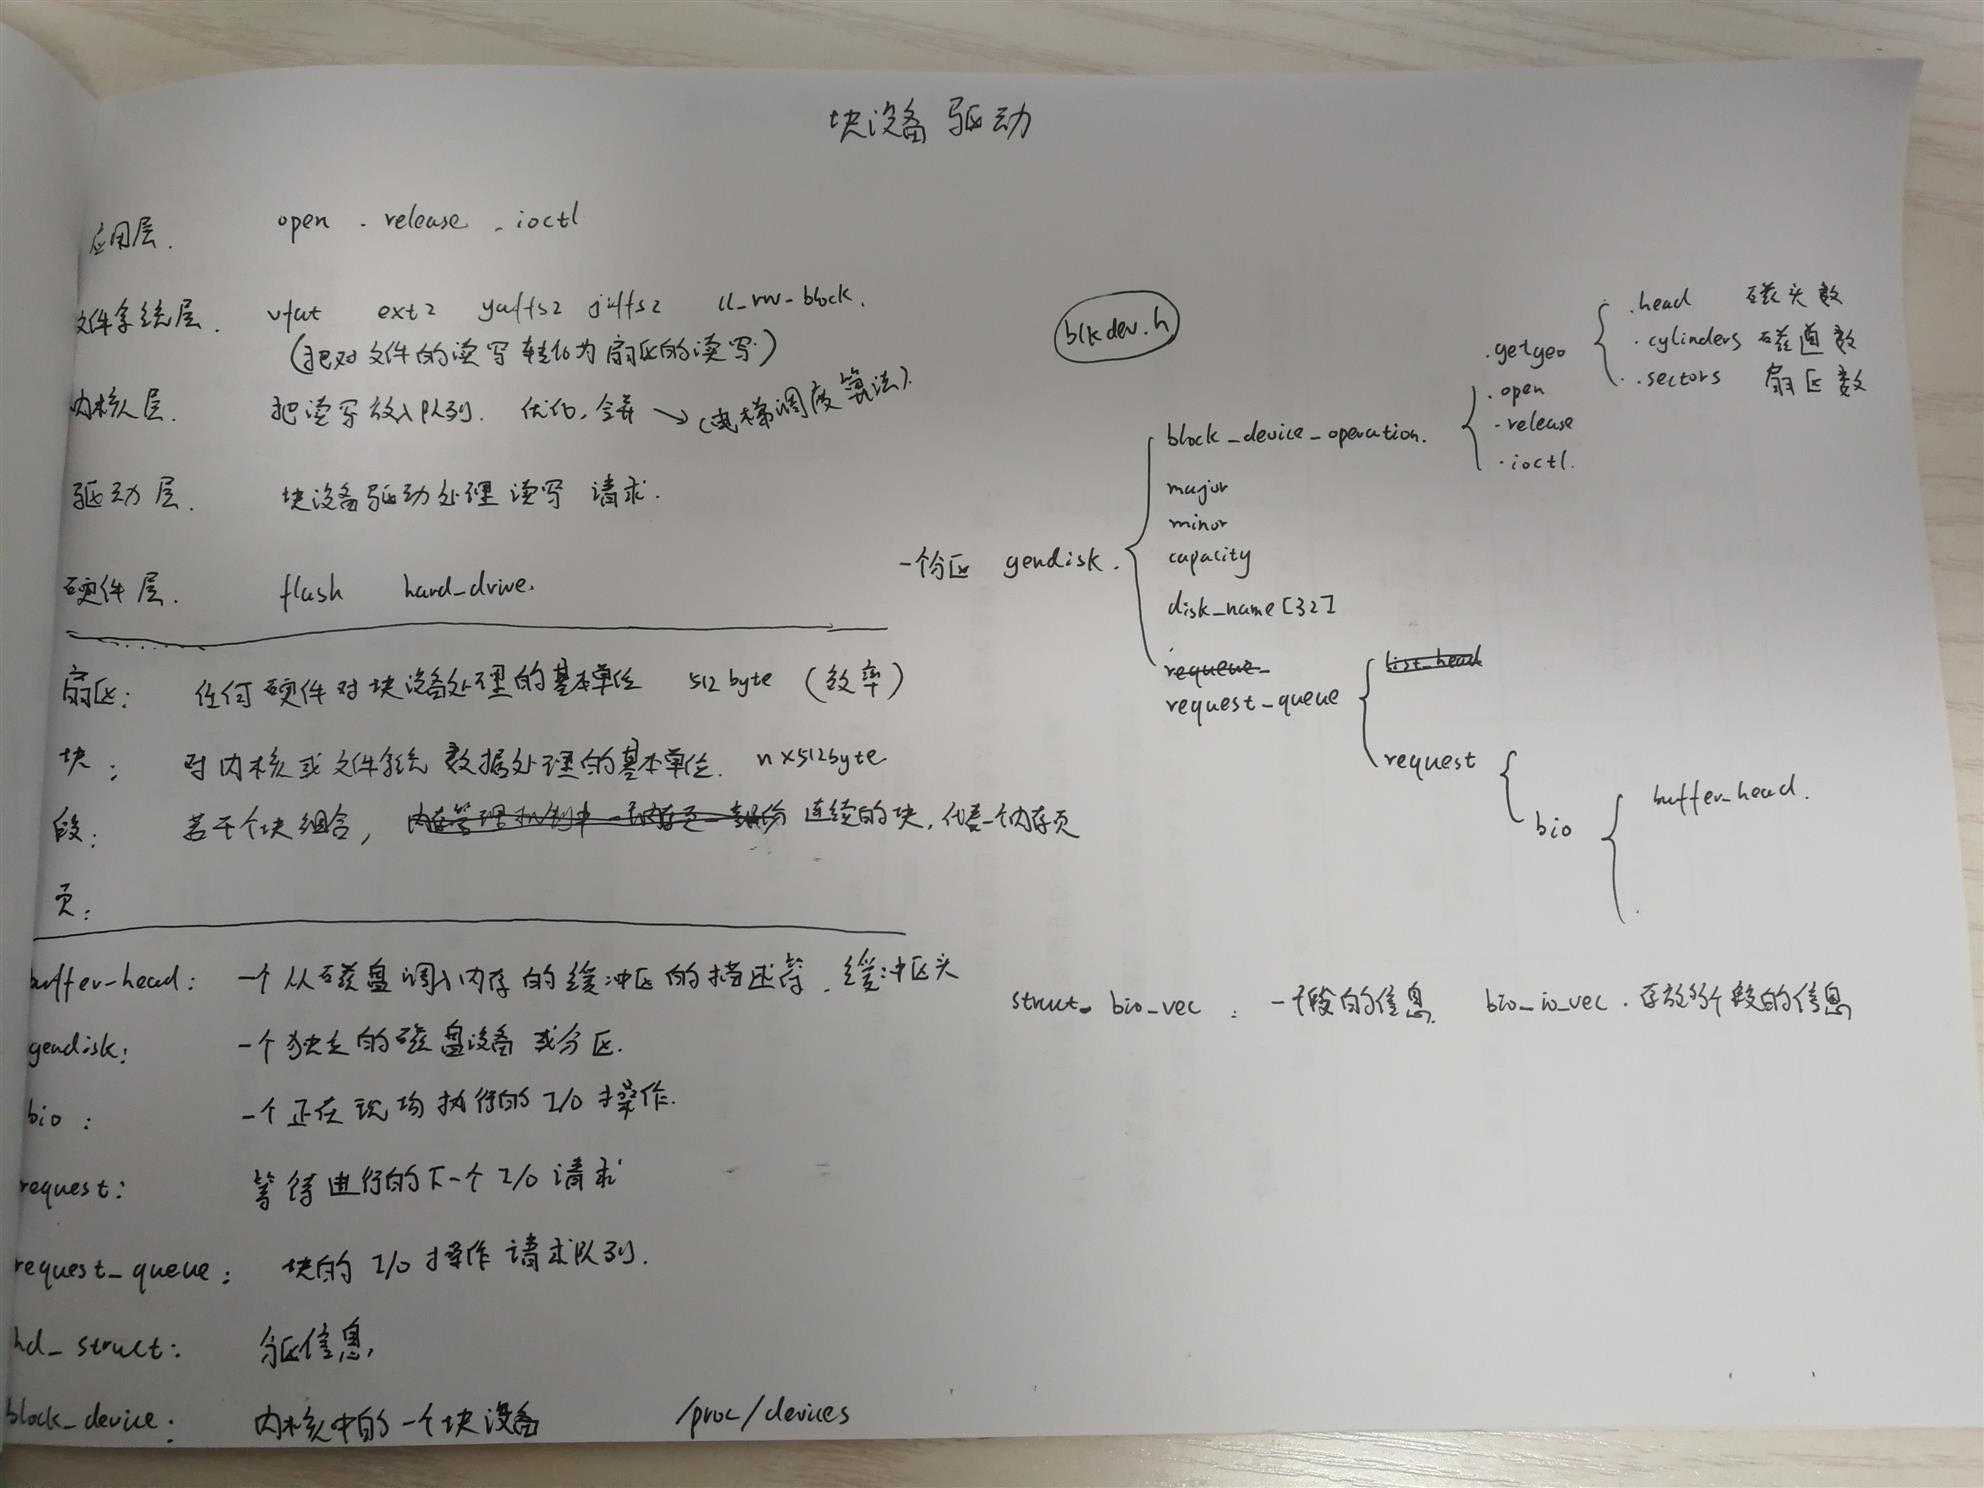 块设备驱动
应用层. open . release . ioctl
文件系统层. vfat ext2 yaffs2 jffs2 ll_rw_block.
(把对文件的读写转化为扇区的读写)
内核层. 把读写放入队列. 优化, 合并 → (电梯调度算法).
驱动层. 块设备驱动处理读写请求.
硬件层. flash hard_drive.
扇区: 任何硬件对块设备处理的基本单位 512 byte (效率)
块: 对内核或文件系统数据处理的基本单位. n×512byte
段: 若干个块组合, 连续的块, 代表一个内存页
页:
buffer_head: 一个从磁盘调入内存的缓冲区的描述符, 缓冲区头
gendisk: 一个独立的磁盘设备或分区.
bio: 一个正在现场执行的 I/O 操作.
request: 等待进行的下一个 I/O 请求
request_queue: 块的 I/O 操作请求队列.
hd_struct: 分区信息,
block_device: 内核中的一个块设备 /proc/devices
blkdev.h
一个分区 gendisk.
block_device_operation.
.getgeo
.head 磁头数
.cylinders 磁道数
.sectors 扇区数
.open
.release
.ioctl.
major
minor
capacity
disk_name[32]
requeue_
request_queue
list_head
request
bio
buffer_head.
struct bio_vec : 一个段的信息. bio_io_vec . 存放多个段的信息